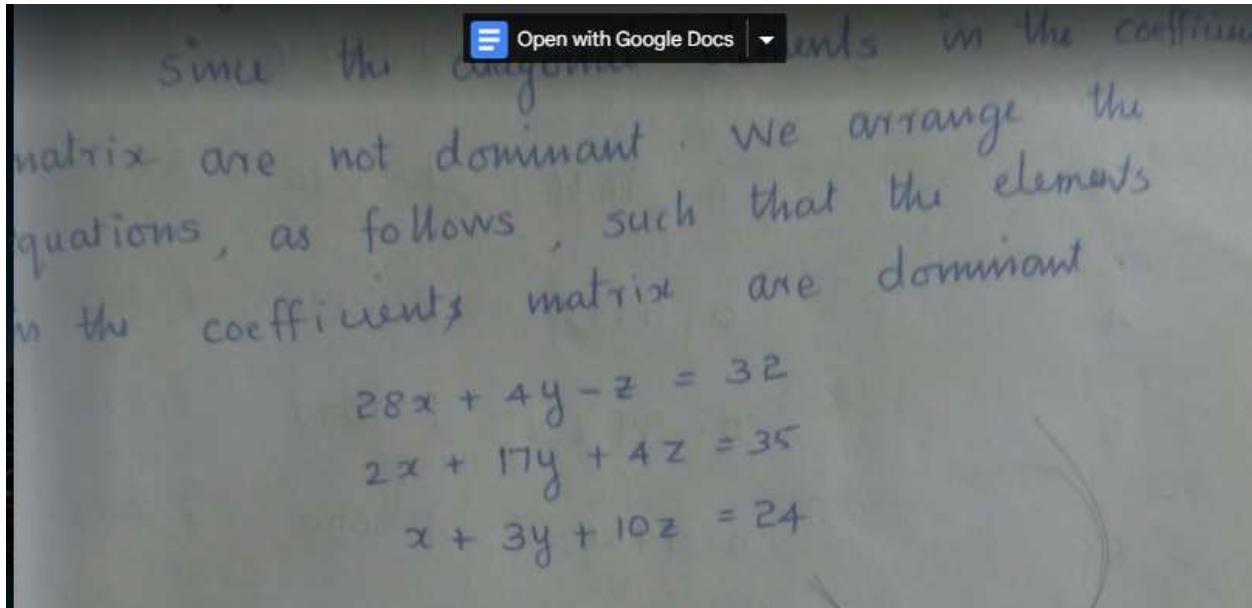 Open with Google Docs
since the ents in the
matrix are not dominant. We arrange the
quations, as follows, such that the elements
in the coefficients matrix are dominant.
28x + 4y - z = 32
2x + 17y + 4z = 35
x + 3y + 10z = 24